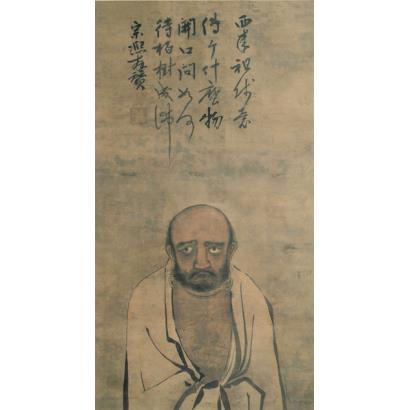 西来祖師意
傳个什麼物
開口問如何
待柏樹成佛
宗熙拜賛